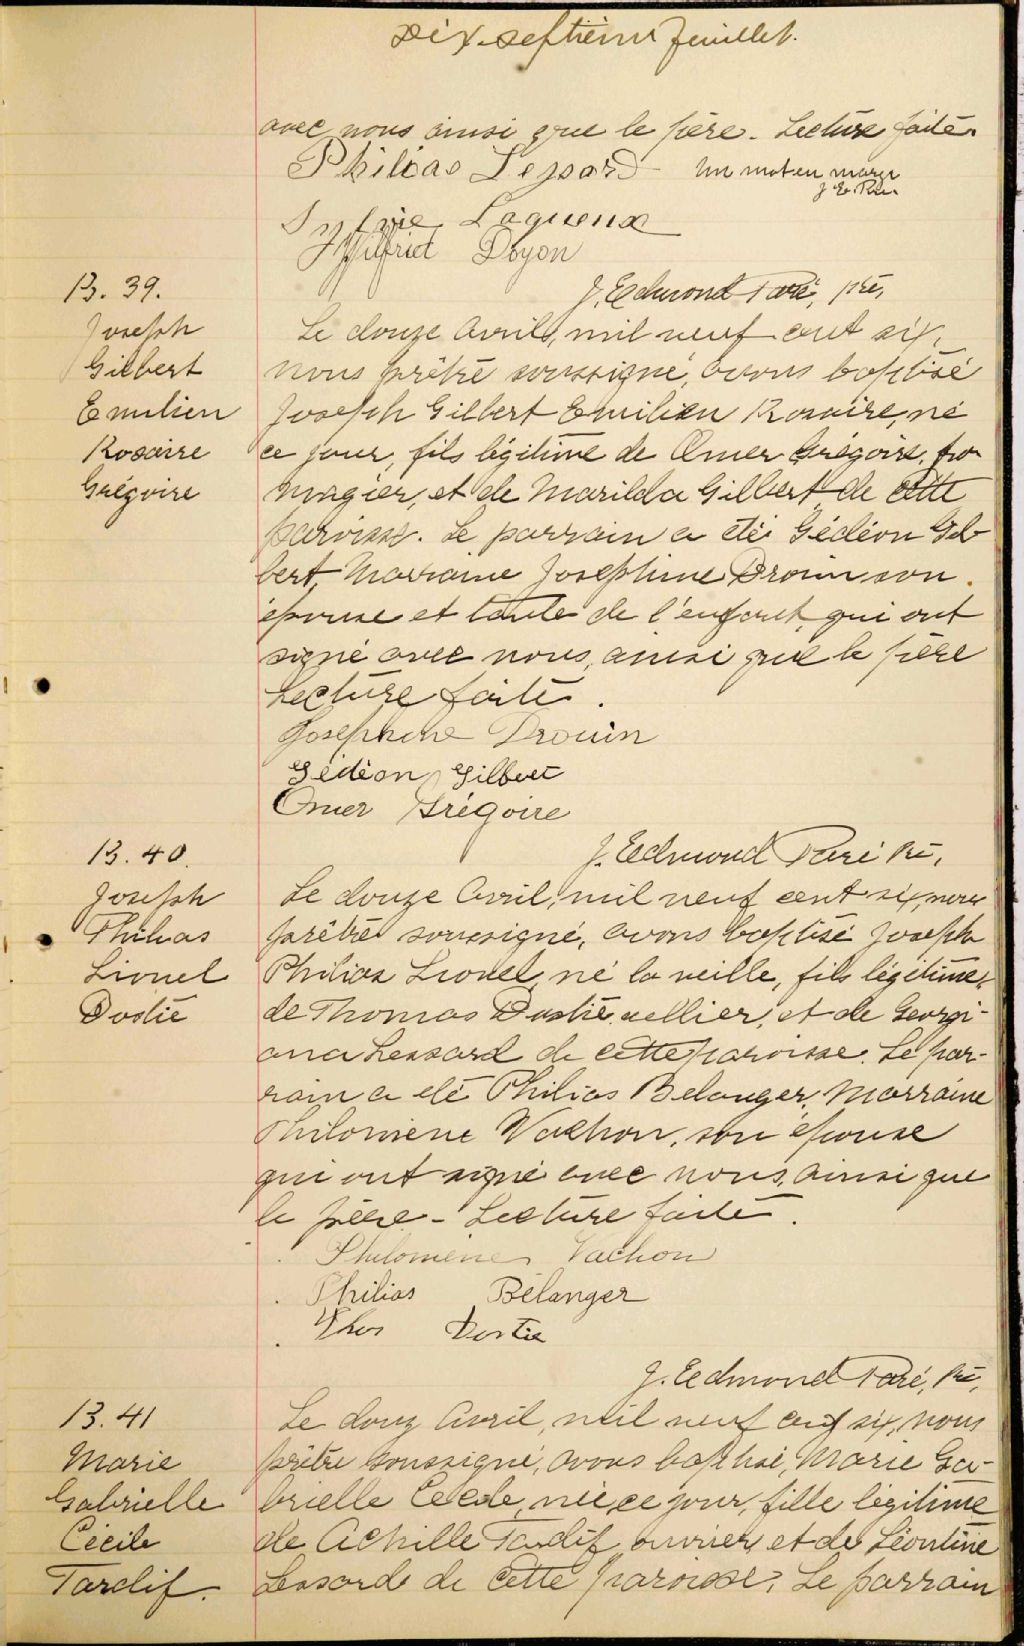 Dix-septième feuillet.
avec nous ainsi que le père. Lecture faite.
Philias Lessard
Un mot en marge
J. E. Paré
Sylvie Lagueux
Wilfrid Doyon
J. Edmond Paré, ptre,
B. 39.
Joseph
Gilbert
Emilien
Rosaire
Grégoire
Le douze Avril, mil neuf cent six,
nous prêtre soussigné, avons baptisé
Joseph Gilbert Emilien Rosaire, né
ce jour, fils légitime de Omer Grégoire, fro-
magier, et de Marilda Gilbert de cette
paroisse. Le parrain a été Gédéon Gil-
bert, Marraine Josephine Drouin son
épouse et tante de l'enfant, qui ont
signé avec nous, ainsi que le père
Lecture faite.
Josephine Drouin
Gédéon Gilbert
Omer Grégoire
J. Edmond Paré Ptre,
B. 40.
Joseph
Philias
Lionel
Dostie
Le douze Avril, mil neuf cent six, nous
prêtre soussigné, avons baptisé Joseph
Philias Lionel, né la veille, fils légitime,
de Thomas Dostie, sellier, et de Georgi-
ana Lessard de cette paroisse. Le par-
rain a été Philias Belanger, Marraine
Philomène Vachon, son épouse
qui ont signé avec nous, ainsi que
le père - Lecture faite.
Philomène Vachon
Philias Bélanger
Thos Dostie
J. Edmond Paré, Ptre,
B. 41
Marie
Gabrielle
Cécile
Tardif.
Le douz Avril, mil neuf cent six, nous
prêtre soussigné, avons baptisé, Marie Ga-
brielle Cécile, née ce jour, fille légitime
de Achille Tardif, ouvrier, et de Léontine
Lessard de cette paroisse. Le parrain